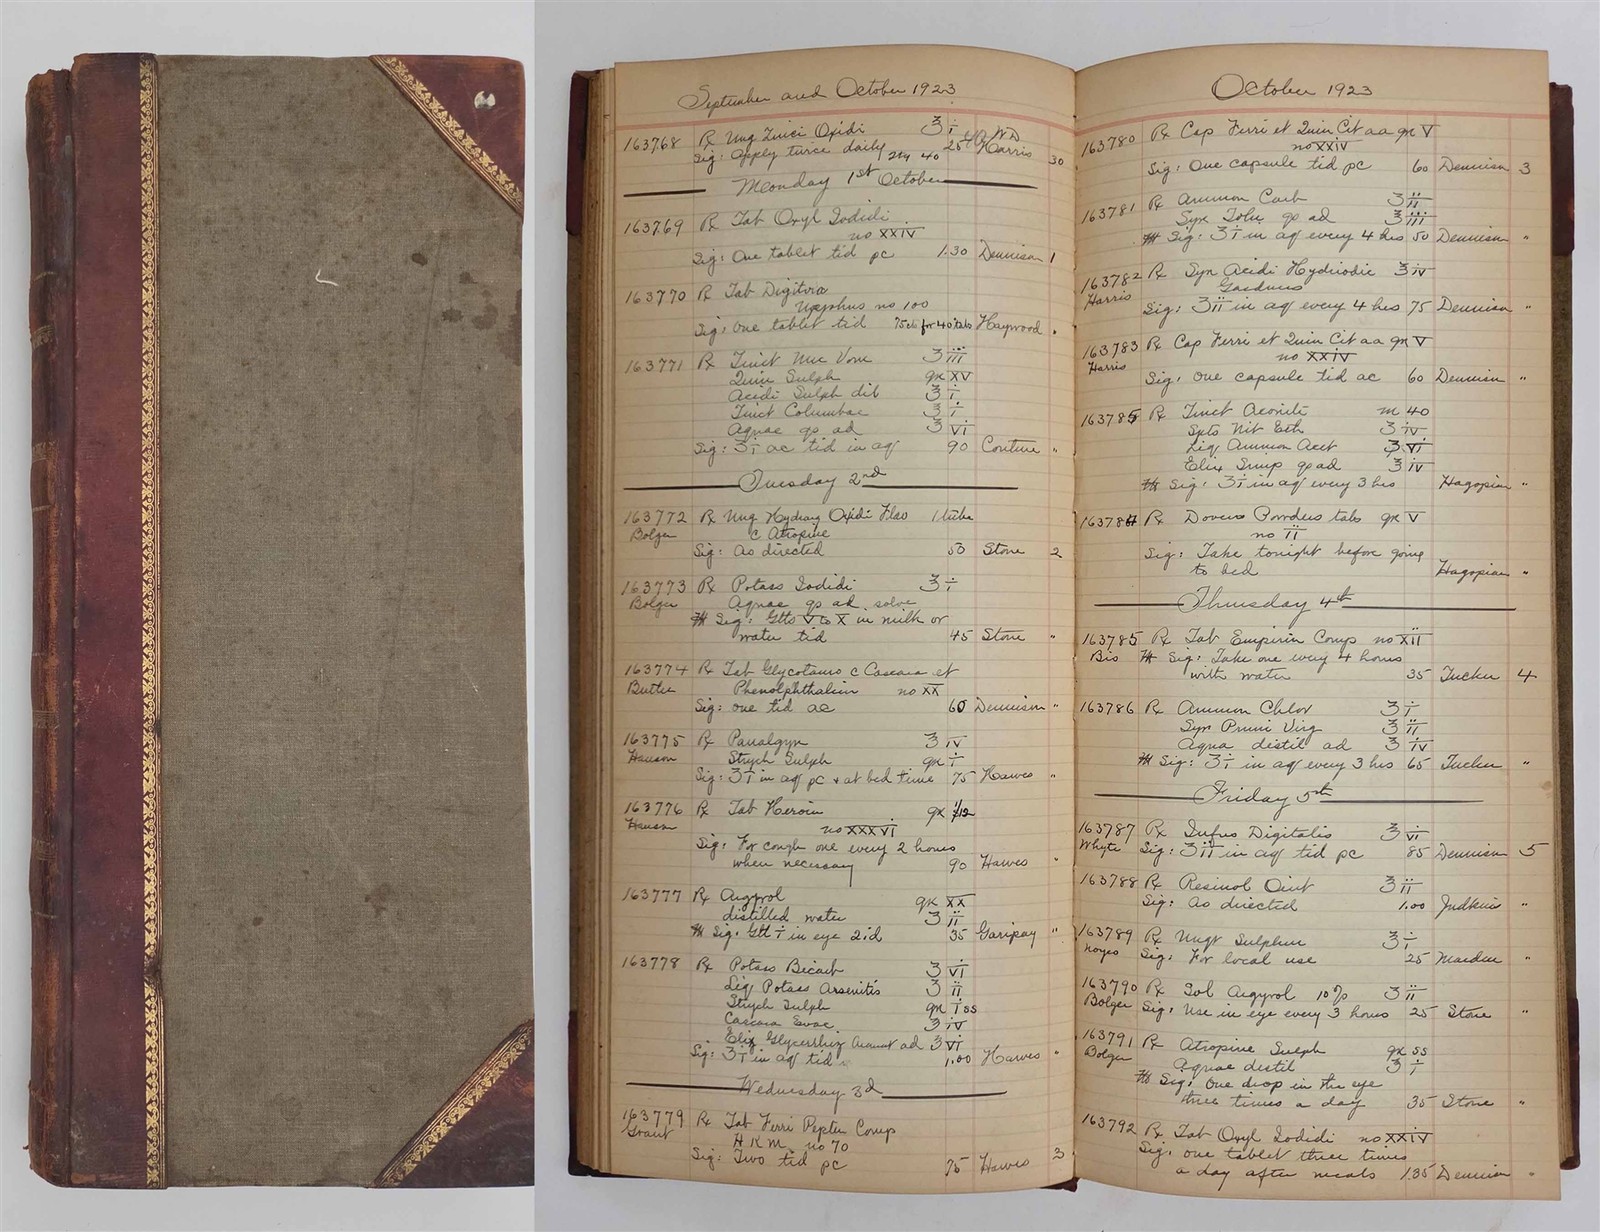 September and October 1923
163768 ℞ Ung Zinci Oxidi ℥ i W D
Sig: Apply twice daily 25 Harris 30
Monday 1st October
163769 ℞ Tab Oxyl Iodidi
no XXIV
Sig: One tablet tid pc 1.30 Dennison 1
163770 ℞ Tab Digitora
Upjohns no 100
Sig: One tablet tid 75cts for 40 tabs Haywood "
163771 ℞ Tinct Nuc Vom ʒ iii
Quin Sulph gr XV
Acidi Sulph dil ʒ i
Tinct Columbae ℥ i
Aquae qs ad ℥ VI
Sig: ʒ i ac tid in aq 90 Couture "
Tuesday 2nd
163772 ℞ Ung Hydrarg Oxidi Flav 1 tube
Bolger c Atropine
Sig: As directed 50 Stone 2
163773 ℞ Potass Iodidi ℥ i
Bolger Aquae qs ad solve
Sig: Gtts V to X in milk or
water tid 45 Stone "
163774 ℞ Tab Glycotauro c Cascara et
Butler Phenolphthalein no XX
Sig: One tid ac 60 Dennison "
163775 ℞ Panalgyn ℥ IV
Hanson Strych Sulph gr i
Sig: ʒ i in aq pc + at bed time 75 Hawes "
163776 ℞ Tab Heroin gr 1/12
Hanson no XXXVI
Sig: For cough one every 2 hours
when necessary 90 Hawes "
163777 ℞ Argyrol gr XX
distilled water ʒ ii
Sig: Gtt i in eye 2id 35 Garipay "
163778 ℞ Potass Bicarb ʒ VI
Liq Potass Arsenitis ʒ ii
Strych Sulph gr i ss
Cascara Evac ʒ iv
Elix Glycerrhiz Aromat ad ℥ VI
Sig: ʒ i in aq tid 1.00 Hawes "
Wednesday 3rd
163779 ℞ Tab Ferri Pepton Comp
Grant H K M no 70
Sig: Two tid pc 75 Hawes 3
October 1923
163780 ℞ Cap Ferri et Quin Cit aa gr V
no XXIV
Sig: One capsule tid pc 60 Dennison 3
163781 ℞ Ammon Carb ʒ ii
Syr Tolu qs ad ℥ iii
Sig: ʒ i in aq every 4 hrs 50 Dennison "
163782 ℞ Syr Acidi Hydriodic ℥ iv
Harris Gardners
Sig: ʒ ii in aq every 4 hrs 75 Dennison "
163783 ℞ Cap Ferri et Quin Cit aa gr V
Harris no XXIV
Sig: One capsule tid ac 60 Dennison "
163785 ℞ Tinct Aconiti m 40
Spts Nit Eth ʒ iv
Liq Ammon Acet ʒ vi
Elix Simp qs ad ℥ iv
Sig: ʒ i in aq every 3 hrs Hagopian "
163784 ℞ Dovers Powders tabs gr V
no ii
Sig: Take tonight before going
to bed Hagopian "
Thursday 4th
163785 ℞ Tab Empirin Comp no XII
Bis Sig: Take one every 4 hours
with water 35 Tucker 4
163786 ℞ Ammon Chlor ʒ i
Syr Pruni Virg ℥ ii
Aqua distil ad ℥ iv
Sig: ʒ i in aq every 3 hrs 65 Tucker "
Friday 5th
163787 ℞ Infus Digitalis ℥ vi
Whyte Sig: ʒ ii in aq tid pc 85 Dennison 5
163788 ℞ Resinol Oint ℥ ii
Sig: As directed 1.00 Judkins "
163789 ℞ Ungt Sulphur ℥ i
Noyes Sig: For local use 25 Marden "
163790 ℞ Sol Argyrol 10% ʒ ii
Bolger Sig: Use in eye every 3 hours 25 Stone "
163791 ℞ Atropine Sulph gr ss
Bolger Aquae distil ʒ i
Sig: One drop in the eye
three times a day 35 Stone "
163792 ℞ Tab Oxyl Iodidi no XXIV
Sig: One tablet three times
a day after meals 1.35 Dennison "